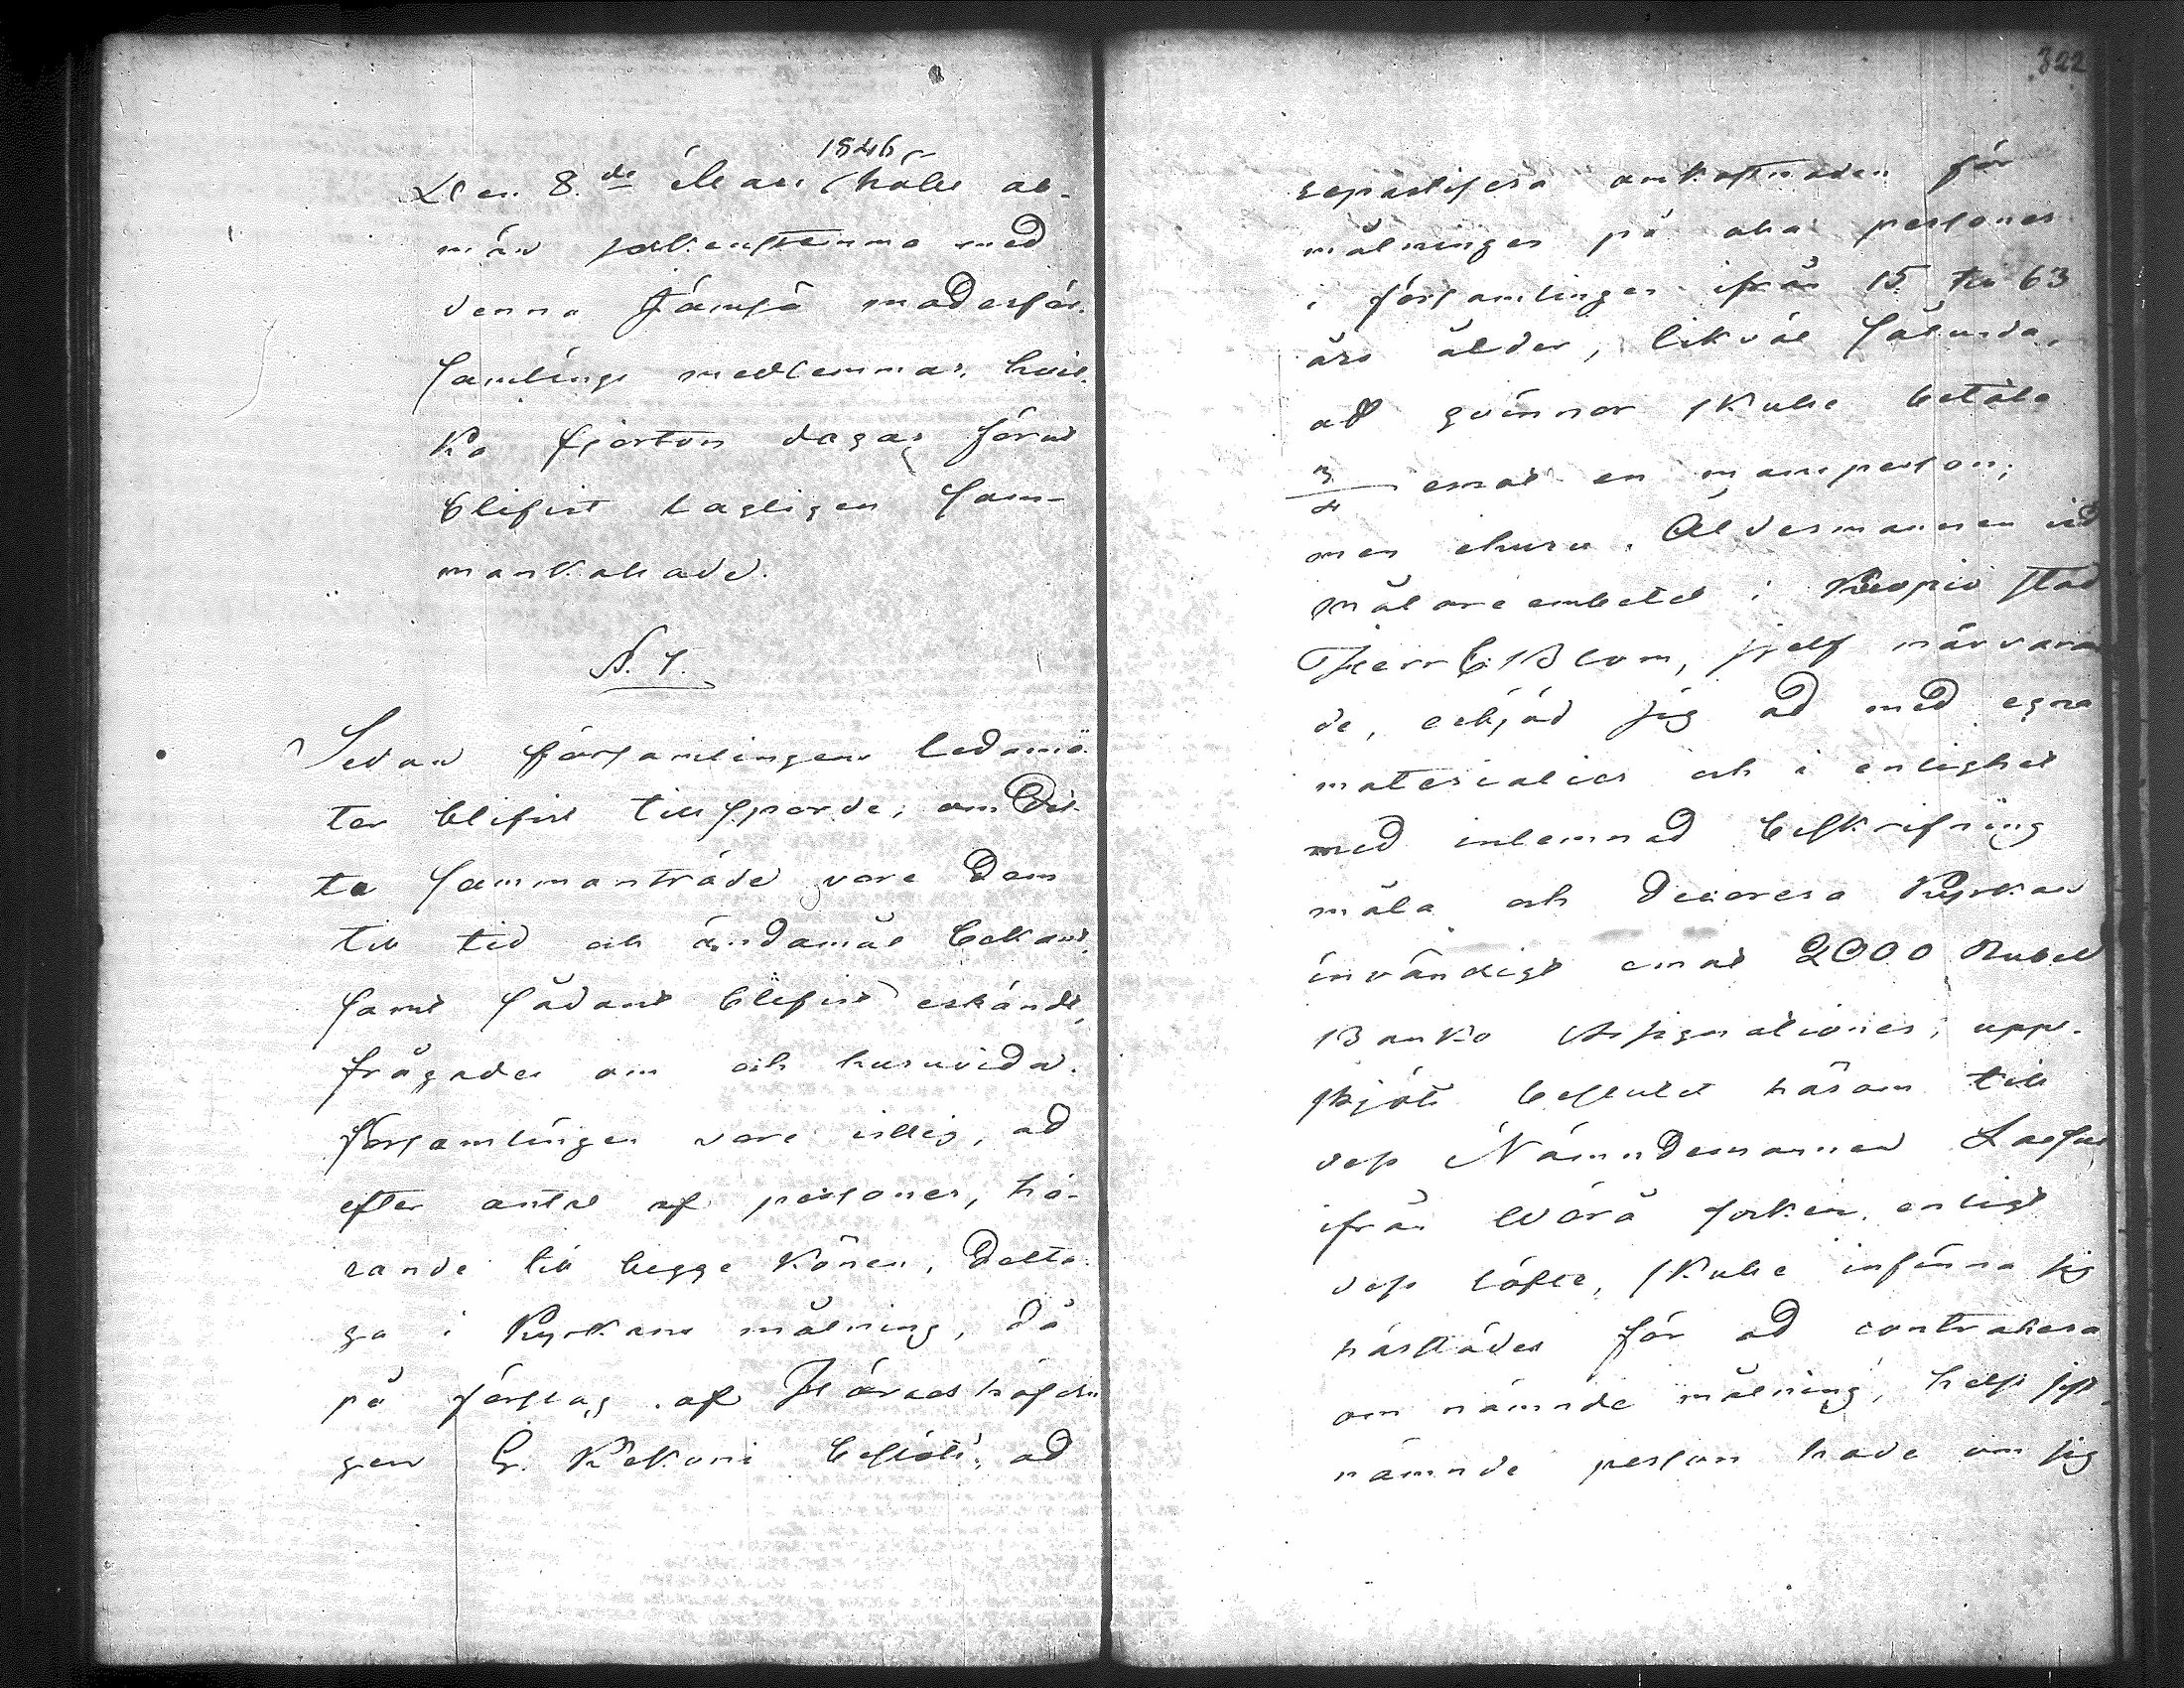 1846
Den 8.de Mars hölls all-
män sockenstemma med
denna Jämsä moderför-
samlings medlemmar, hvil-
ka fjorton dagar förut
blifvit lagligen sam-
mankallade.
§. 1.
Sedan församlingens ledamö-
ter blifvit tillsporde, om det-
ta sammanträde vore dem
till tid och ändamål bekant,
samt sådant blifvit erkändt,
frågades om och huruvida
församlingen vore villig, ad
efter antal af personer, hö-
rande till begge könen, delta-
ga i Kyrkans målning, då
på förslag af Häradshöfdin
gen G. Kekoni beslöts, ad
322
repartisera omkostnaden för
målningen på alla personer
i församlingen ifrån 15 till 63
års ålder, likväl sålunda,
att qvinnor skulle betala
3/4 emot en mansperson;
men ehuru Åldermannen vid
målareembetet i Kuopio stad
Herr C. Blom, sjelf närvaran
de, erbjöd sig ad med egna
materialier och i enlighet
med inlemnad beskrifning
måla och decorera Kyrkan
invändigt emot 2000 Rubel
Banko Assignationer, upp-
skjöts beslutet härom till
dess Nämndemannen
ifrån Wörå socken, enligt
dess löfte, skulle infinna sig
härstädes för ad contrahera
om nämnde målning, helst sist-
nämnde person hade om sig